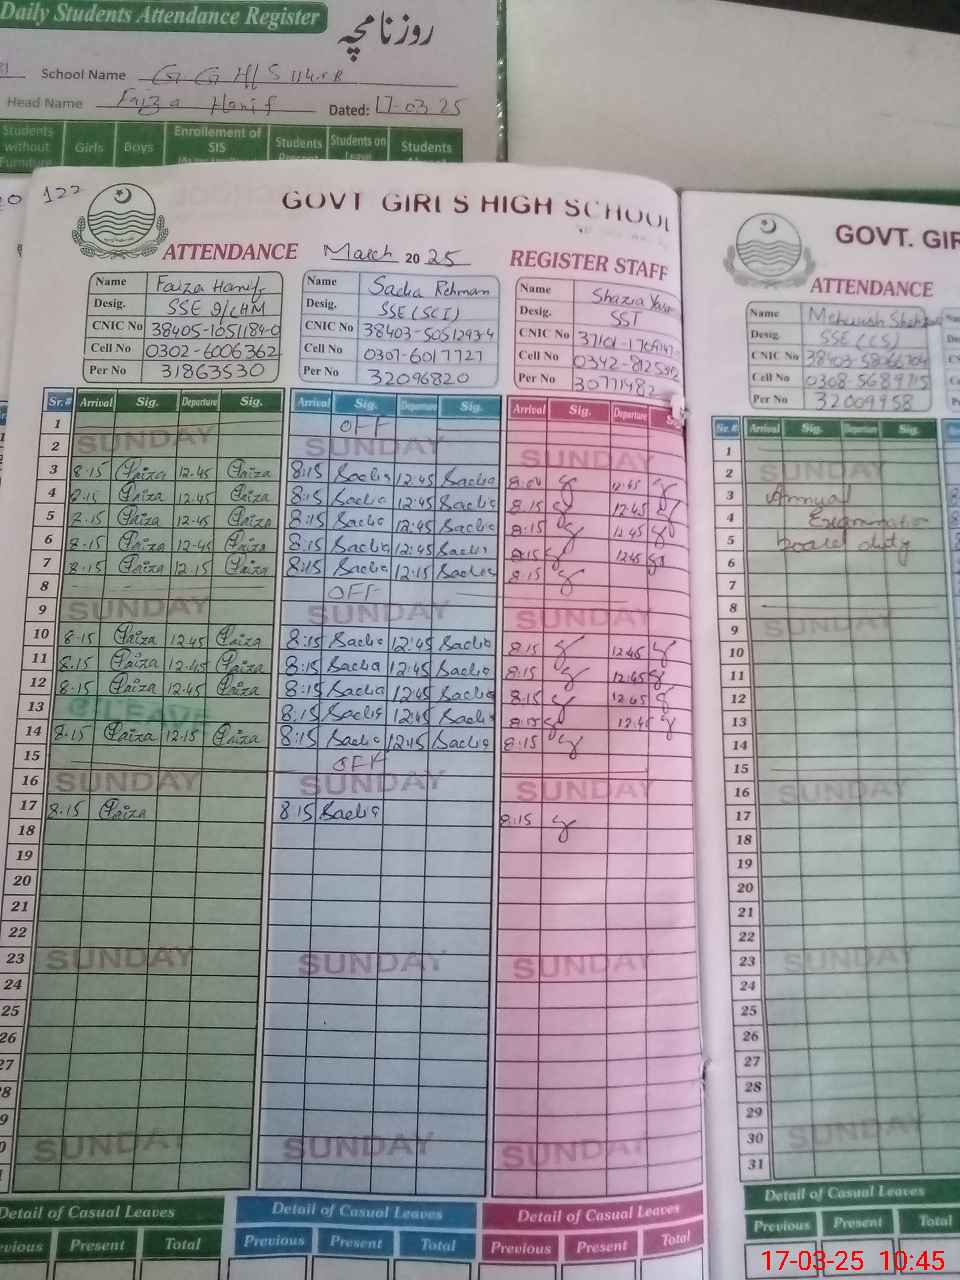 Daily Students Attendance Register
روزنامچہ
School Name G G H/S 114.S.B
Head Name Faiza Hanif Dated: 17-03 25
Students without Furniture Girls Boys Enrollement of SIS Students Students on Students
122
GOVT GIRLS HIGH SCHOOL
ATTENDANCE March 2025 REGISTER STAFF
Name Faiza Hanif
Desig. SSE I/c HM
CNIC No 38405-1051184-0
Cell No 0302-6006362
Per No 31863530
Name Sadia Rehman
Desig. SSE (SCI)
CNIC No 38403-5051293-4
Cell No 0307-6017727
Per No 32096820
Name Shazia
Desig. SST
CNIC No
Cell No
Per No 30771482
Sr.# Arrival Sig. Departure Sig. Arrival Sig. Departure Sig. Arrival Sig. Departure
1 OFF
2 SUNDAY SUNDAY SUNDAY
3 8.15 Faiza 12.45 Faiza 8:15 Sadia 12:45 Sadia 12:45
4 8.15 Faiza 12.45 Faiza 8:15 Sadia 12:45 Sadia 8.15 12.45
5 8.15 Faiza 12-45 Faiza 8:15 Sadia 12:45 Sadia 8.15 12.45
6 8.15 Faiza 12-45 Faiza 8:15 Sadia 12:45 Sadia 8.15 12.45
7 8.15 Faiza 12.15 Faiza 8:15 Sadia 12:15 Sadia 8.15
8 OFF
9 SUNDAY SUNDAY SUNDAY
10 8.15 Faiza 12.45 Faiza 8:15 Sadia 12:45 Sadia 8.15 12.45
11 8.15 Faiza 12.45 Faiza 8:15 Sadia 12:45 Sadia 8.15 12.45
12 8.15 Faiza 12.45 Faiza 8:15 Sadia 12:45 Sadia 8.15 12.45
13 C.LEAVE 8:15 Sadia 12:45 Sadia 8.15 12.45
14 8.15 Faiza 12.15 Faiza 8:15 Sadia 12:15 Sadia 8.15
15 OFF
16 SUNDAY SUNDAY SUNDAY
17 8.15 Faiza 8.15 Sadia 8.15
18
19
20
21
22
23 SUNDAY SUNDAY SUNDAY
24
25
26
27
SUNDAY SUNDAY SUNDAY
Detail of Casual Leaves Detail of Casual Leaves Detail of Casual Leaves
Present Total Previous Present Total Previous Present Total
GOVT. GIR
ATTENDANCE
Name Mehwish
Desig. SSE (CS)
CNIC No
Cell No
Per No 32009958
Sr.# Arrival Sig. Departure Sig.
1
2 SUNDAY
3 Annual
4 Examination
5 board duty
6
7
8
9 SUNDAY
10
11
12
13
14
15
16 SUNDAY
17
18
19
20
21
22
23 SUNDAY
24
25
26
27
28
29
30 SUNDAY
31
Detail of Casual Leaves
Previous Present Total
17-03-25 10:45